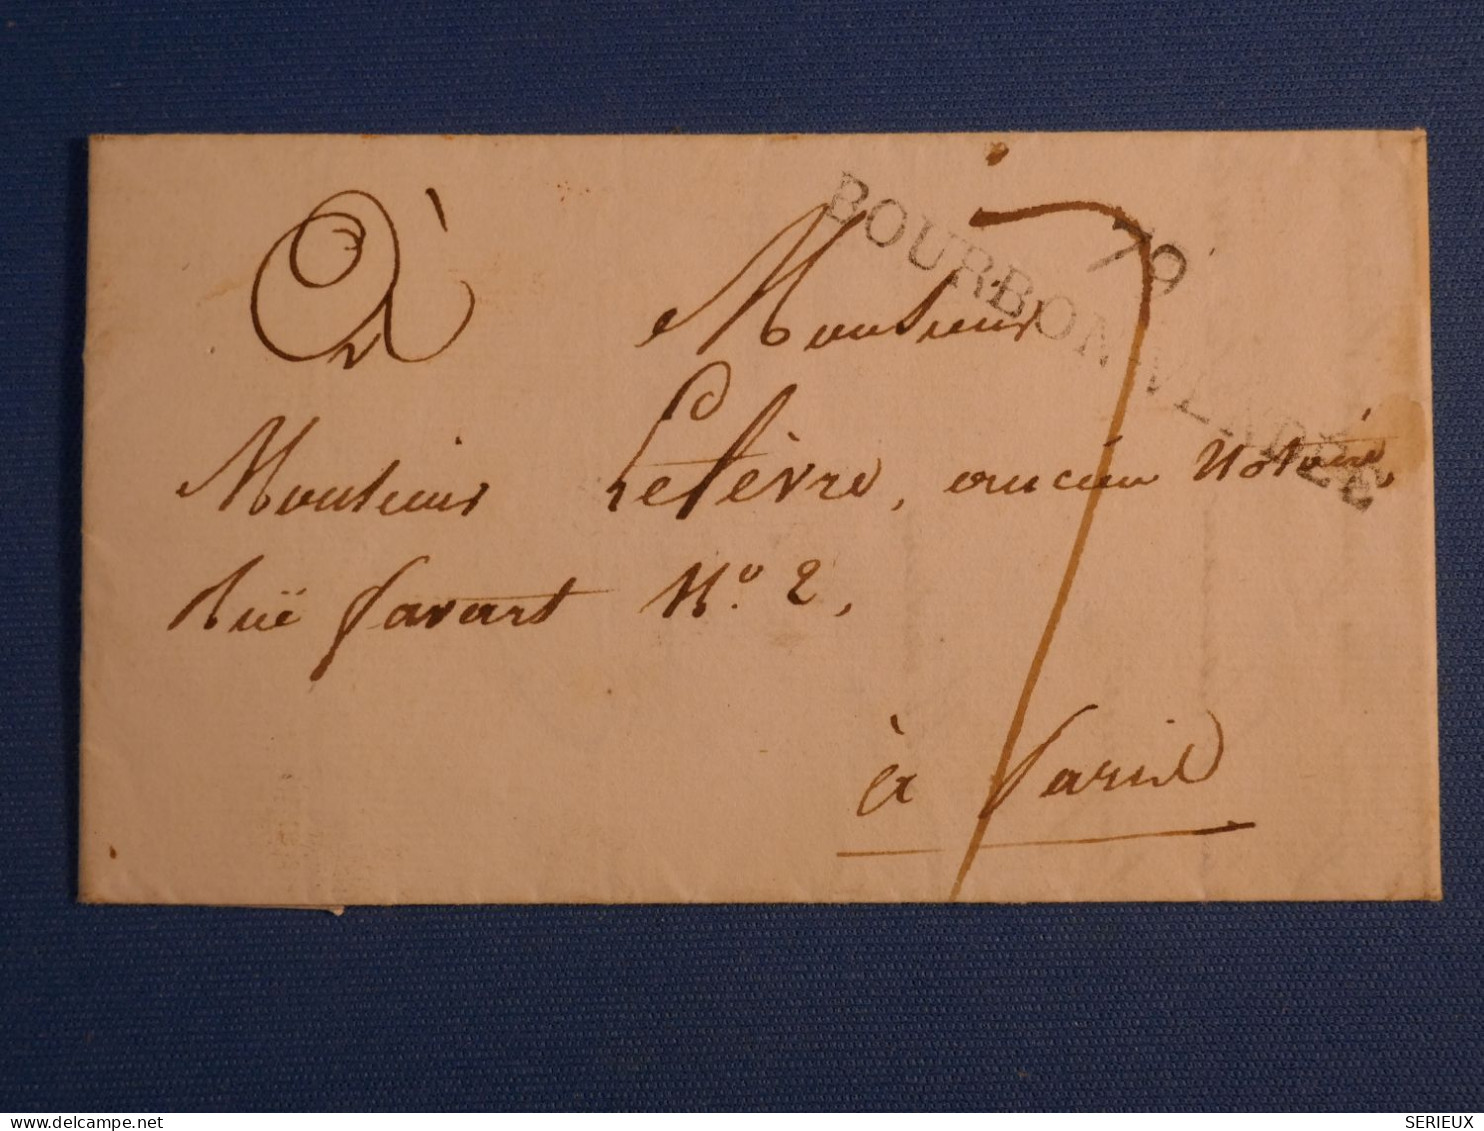 79
BOURBON-VENDÉE
À Monsieur
Monsieur Lefèvre, ancien Notaire,
Ruë favart N.o 2,
à Paris
7
www.delcampe.net
SERIEUX